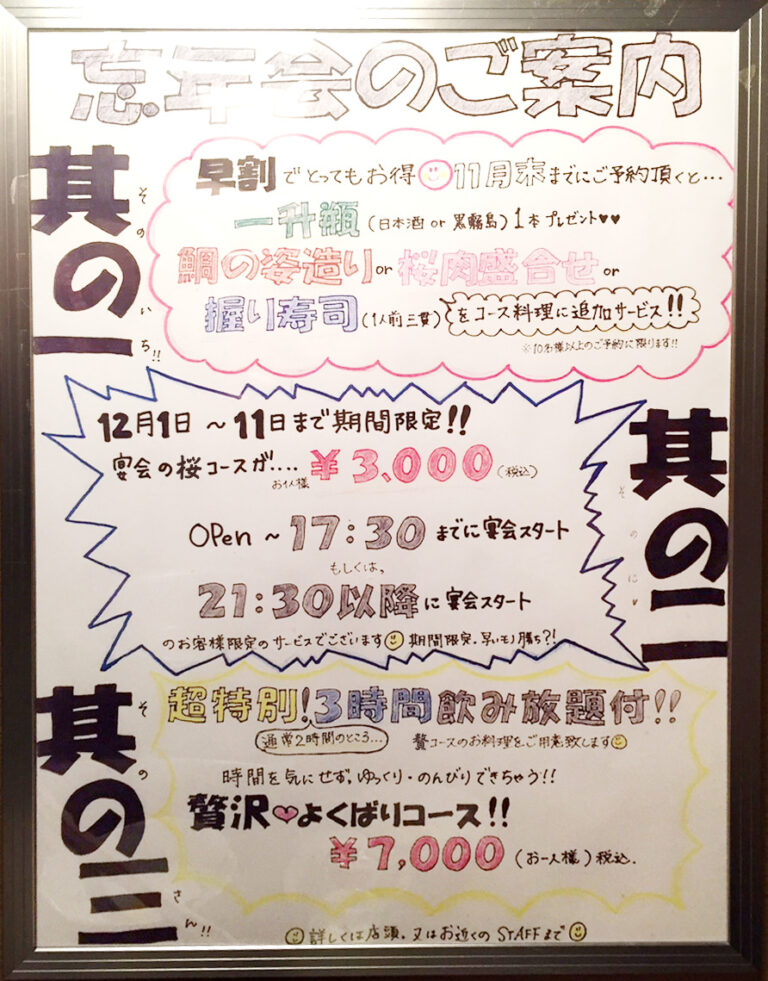 忘年会のご案内
其の一
そのいち!!
早割でとってもお得 11月末までにご予約頂くと…
一升瓶(日本酒 or 黒霧島)1本プレゼント♥♥
鯛の姿造り or 桜肉盛合せ or
握り寿司(1人前三貫)をコース料理に追加サービス!!
※10名様以上のご予約に限ります!!
其の二
そのに♥
12月1日 ~ 11日まで期間限定!!
宴会の桜コースが.... お1人様 ¥3,000(税込)
OPen ~ 17:30 までに宴会スタート
もしくは、
21:30以降に宴会スタート
のお客様限定のサービスでございます 期間限定.早いモノ勝ち?!
其の三
そのさん!!
超特別!3時間飲み放題付!!
通常2時間のところ...
贅コースのお料理をご用意致します
時間を気にせず,ゆっくり・のんびりできちゃう!!
贅沢♥よくばりコース!!
¥7,000(お一人様)税込.
詳しくは店頭.又はお近くのSTAFFまで